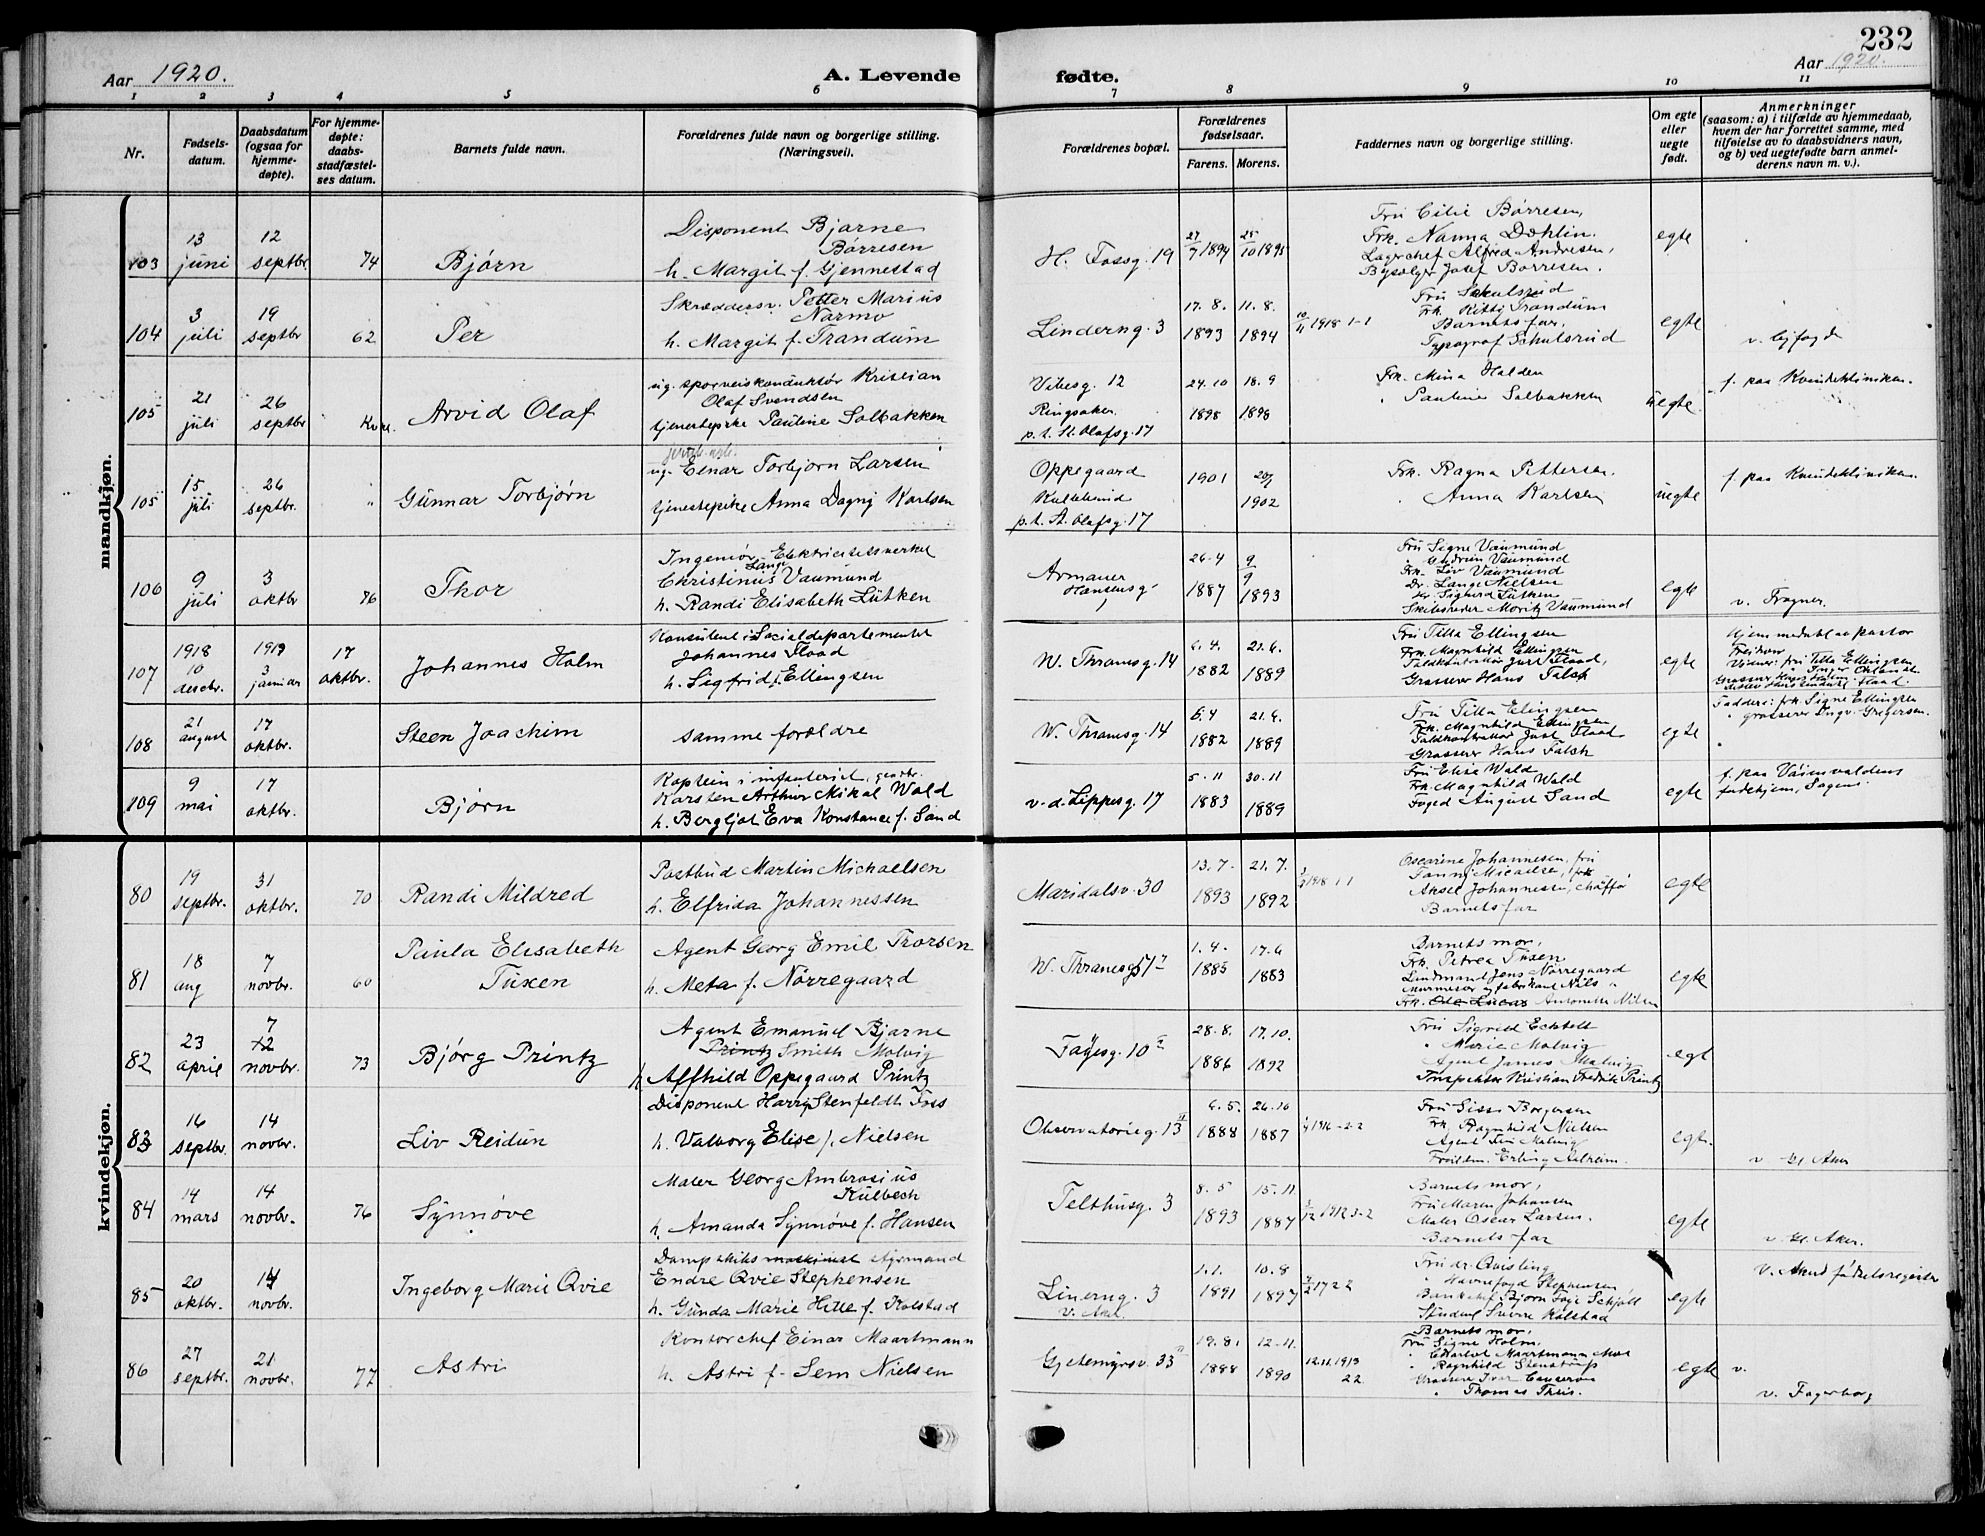 232
Aar 1920.
A. Levende
fødte.
Aar 1920.
1 2 3 4 5 6 7 8 9 10 11
Nr.
Fødsels-
datum.
Daabsdatum
(ogsaa for
hjemme-
døpte).
For hjemme-
døpte:
daabs-
stadfæstel-
ses datum.
Barnets fulde navn.
Forældrenes fulde navn og borgerlige stilling.
(Næringsvei).
Forældrenes bopæl.
Forældrenes
fødselsaar.
Farens. Morens.
Faddernes navn og borgerlige stilling.
Om egte
eller
uegte
født.
Anmerkninger
(saasom: a) i tilfælde av hjemmedaab,
hvem der har forrettet samme, med
tilføielse av to daabsvidners navn,
og b) ved uegtefødte barn anmel-
derens navn m. v.).
mandkjøn.
103
13
juni
12
septbr
74
Bjørn
Disponent Bjarne
Børresen
h. Margit f. Gjennestad
H. Fossg. 19
27/7 1894
25/10 1895
Fru Cilie Børresen,
Frk. Nanna Dæhlin.
Lagerchef Alfred Andresen,
Bysælger Josef Børresen.
egte
104
3
juli
19
septbr
62
Per
Skræddersv. Petter Marius
Narmo
h. Margit f. Trandum
Linderng. 3
17. 8.
1893
11. 8.
1894
10/11 1918 1-1
Fru Schulsrud
Frk. Kitti Trandum
Barnets far,
Typograf Schulsrud
egte
v. byfogd
105
21
juli
26
septbr
Kvkl.
Arvid Olaf
ug. sporveiskonduktør Kristian
Olaf Svendsen
tjenestepike Pauline Solbakken
Vibesg. 12
Ringsaker.
p.t. St. Olafsg. 17
24. 10
1898
18. 9
1898
Frk. Mina Halden
" Pauline Solbakken
uegte.
f. paa Kvindekliniken.
105
15
juli
26
septbr.
"
Gunnar Torbjørn
ug. Einar Torbjørn Larsen
tjenestepike Anna Dagny Karlsen
Oppegaard
Kullebund
p.t. St. Olafsg. 17
1901
20/7
1902
Frk. Ragna Pettersen.
" Anna Karlsen
uegte
f. paa Kvindekliniken.
106
9
juli
3
oktbr
86
Thor
Ingeniør Elektricitetsverket
Lange
Christinus Vaumund
h. Randi Elisabeth Lütken
Armauer
Hansensg.
26. 4
1887
9/9
1893
Fru Signe Vaumund
Frk. Liv Vaumund
Dr. Lange Nielsen
Sigurd Lütken
Skibsreder Moritz Vaumund
egte
v. Frogner.
107
1918
10
desbr.
1919
3
januar
17
oktbr.
Johannes Holm
Konsulent i Socialdepartementet
Johannes Flaad
h. Sigfrid f. Ellingsen
W. Thranesg. 14
6. 4.
1882
21. 6.
1889
Fru Tilla Ellingsen
Frk. Magnhild Ellingsen
Toldkontrollør Just Flaad,
Grosserer Hans Falch
egte
Hjemmedøbt av pastor
Vidner: fru Tilla Ellingsen
Faddere: frk Signe Ellingsen
" grosserer Ingv. Gregersen.
108
21
august
17
oktbr.
Steen Joachim
samme forældre
W. Thranesg. 14
6. 4
1882
21. 6.
1889
Fru Tilla Ellingsen
Frk. Magnhild Ellingsen
Toldkontrollør Just Flaad
Grosserer Hans Falch
egte
"
109
9
mai
17
oktbr.
Bjørn
Kaptein i infanteriet,
Karsten Arthur Mikal Wold
h. Bergljot Eva Konstance f. Sand
v. d. Lippesg. 17
5. 11
1883
30. 11
1889
Fru Elise Wold
Frk. Magnhild Wold
Foged August Sand
egte
f. paa
fødehjem, Sagens
kvindekjøn.
80
19
septbr.
31
oktbr.
70
Randi Mildred
Postbud Martin Michaelsen
h. Elfrida Johannessen
Maridalsv. 30
13. 7.
1893
21. 7.
1892
1918 1-1
Oscarine Johannesen, fru
Fanny Micaelsen, frk
Aksel Johannesen, chaffør
Barnets far
egte
81
18
aug
7
novbr.
60
Paula Elisabeth
Tuxen
Agent Georg Emil Thorsen
h. Meta f. Nørregaard
W. Thranesg 51
1. 4.
1885
17. 6
1883
Barnets mor,
Frk. Petrea Tuxen
Lindmand Jens Nørregaard
Murmester og fabrikant Nils "
Frk. Antonette Nilsen
egte
82
23
april
7
12
novbr.
73
Bjørg Printz
Agent Emanuel Bjarne
Printz Smith Molvig
h. Alfhild Oppegaard Printz
Fayesg. 10
28. 8.
1886
17. 10.
1892
Fru Sigrid Eckholt
" Marie Molvig
Agent James Molvig
Inspektør Kristian Fredrik Printz
egt
83
16
septbr.
14
novbr.
Liv Reidun
Disponent Harry Stenfeldt Foss
h. Valborg Elise f. Nielsen
Observatorieg. 13 II
6. 5.
1888
26. 10
1887
1916 - 2-2
Fru Siss Borgersen
Frk. Ragnhild Nielsen
Agent Molvig
egt.
v Gl Aker
84
14
mars
14
novbr.
76
Synnøve
Maler Georg Ambrosius
Kulbech
h. Amanda Synnøve f. Hansen
Telthusg. 3
8. 5
1893
15. 11
1887
1912 3-2
Barnets mor,
Fru Maren Johansen
Maler Oscar Larsen.
Barnets far
egte
v. Gl. Aker.
85
20
oktbr.
14
novbr.
Ingeborg Marie Qvie
Dampskibs maskinist styrmand
Endre Qvie Stephensen
h. Gunda Marie Hille f. Kolstad
Linerng. 3
v. Akel
1. 1.
1891
10. 8
1897
Fru dr. Qvisling
" Havnefogd Stephensen
Bankchef Bjørn Foye Schjøll
Student Sverre Kolstad
egte
v. fødselsregister
86
27
septbr.
21
novbr.
77
Astri
Kontorchef Einar Maartmann
h. Astri f. Sem Nielsen
Gjetemyrsv. 33 II
19. 8.
1888
12. 11.
1890
12.11.1913
22
Barnets mor,
Fru Signe Holm.
" Ragnhild Stenstrup
Grosserer Ivar
" Thomas Thiis.
egte
v.
v. Fagerborg